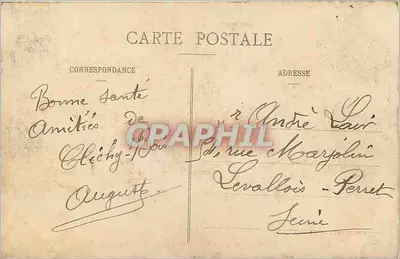 CARTE POSTALE
CORRESPONDANCE
Bonne santé
Amitiés de
Clichy-Bois
Auguste
ADRESSE
r André
rue Marjolin
Levallois-Perret
Seine
CPAPHIL